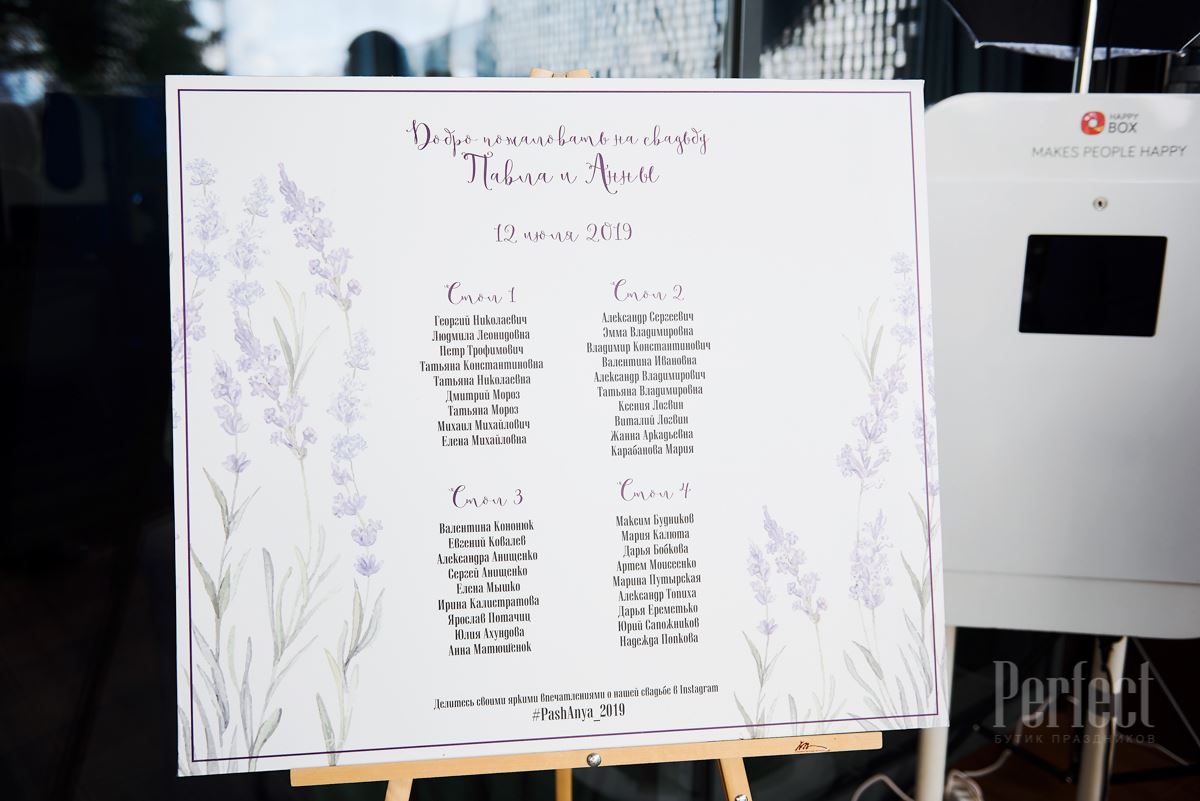 Добро пожаловать на свадьбу
Павла и Анны
12 июля 2019
Стол 1
Георгий Николаевич
Людмила Леонидовна
Петр Трофимович
Татьяна Константиновна
Татьяна Николаевна
Дмитрий Мороз
Татьяна Мороз
Михаил Михайлович
Елена Михайловна
Стол 2
Александр Сергеевич
Эмма Владимировна
Владимир Константинович
Валентина Ивановна
Александр Владимирович
Татьяна Владимировна
Ксения Логвин
Виталий Логвин
Жанна Аркадьевна
Карабанова Мария
Стол 3
Валентина Кононюк
Евгений Ковалев
Александра Анищенко
Сергей Анищенко
Елена Мышко
Ирина Калистратова
Ярослав Потачиц
Юлия Ахундова
Анна Матюшенок
Стол 4
Максим Будников
Мария Калюта
Дарья Бобкова
Артем Моисеенко
Марина Путырская
Александр Топиха
Дарья Ереметько
Юрий Сапожников
Надежда Попкова
Делитесь своими яркими впечатлениями о нашей свадьбе в Instagram
#PashAnya_2019
HAPPY
BOX
MAKES PEOPLE HAPPY
Perfect
БУТИК ПРАЗДНИКОВ